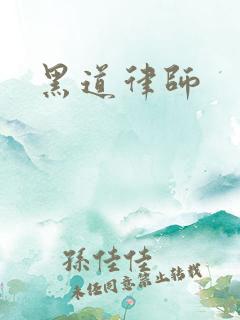 黑道律師
孫佳佳
未經同意禁止轉載